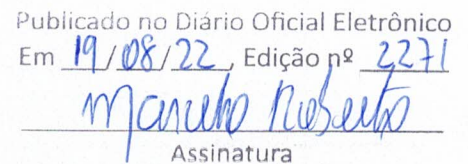 Publicado no Diário Oficial Eletrônico
Em 19/08/22, Edição nº 2271
Marcelo Roberto
Assinatura